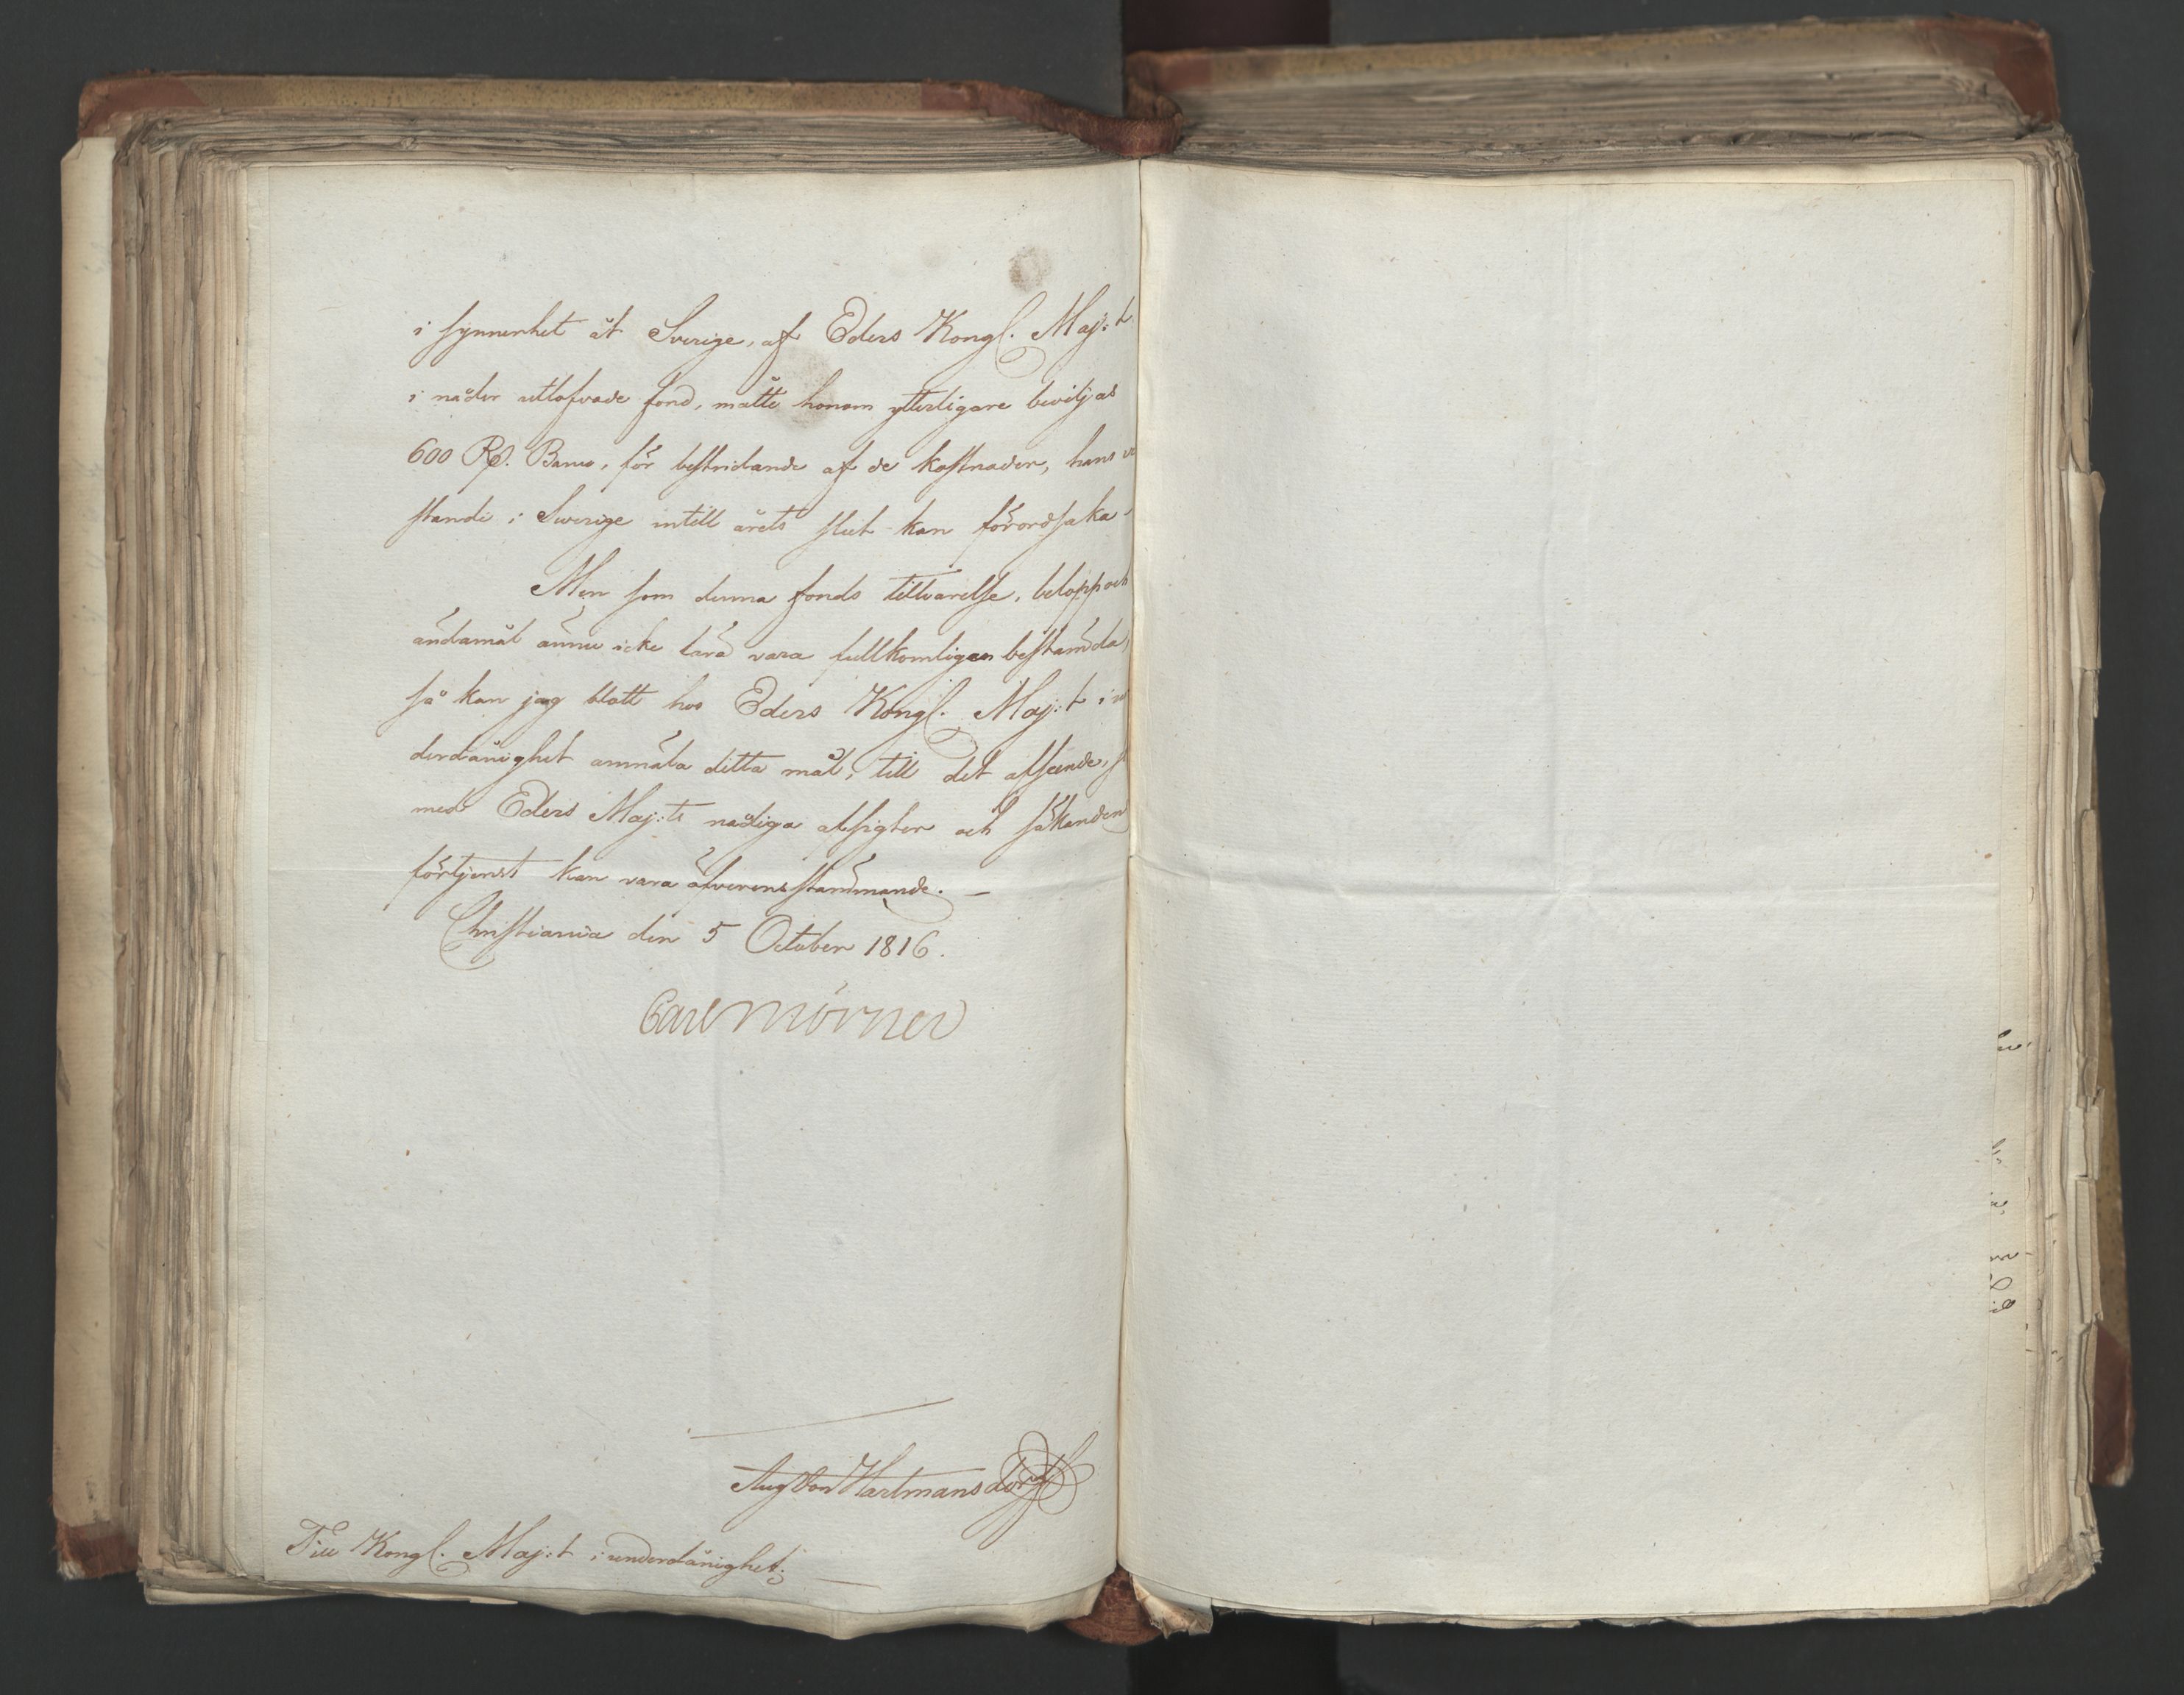 i synnerhet åt Sverige, af Eders Kongl. Maj:t
i nåder utlofvade fond, måtte honom ytterligare beviljas
600 Rd. Banco, för bestridande af de kostnader, hans
stande i Swerige intill årets slut kan förordsaka.
Men som denna fonds tillvarelse, belopp och
ändamål ännu icke lära vara fullkomligen bestämda,
så kan jag blott hos Eders Kongl. Maj:t i
derdånighet anmäla detta mål, till det afseende,
med Eders Maj:ts nådiga afsigter och sökanden
förtjenst kan vara öfverensstämmande. —
Christiania den 5 October 1816.
Carl Mörner
Aug von Hartmansdorff
Till Kongl. Maj:t i underdånighet;